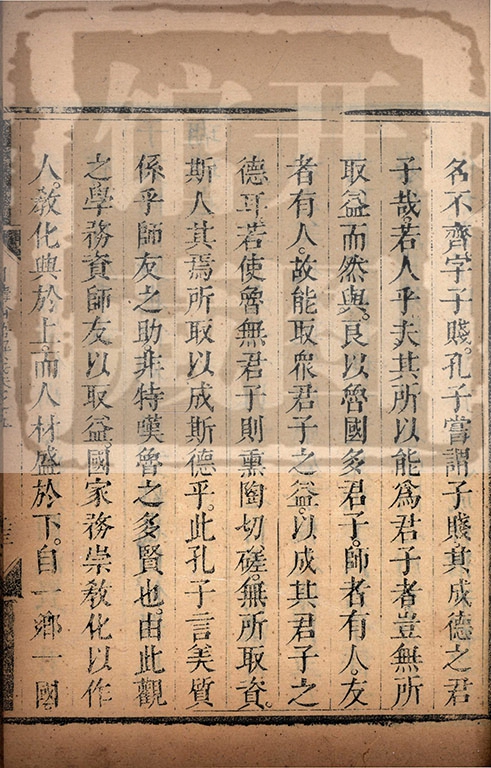 名不齊。字子賤。孔子嘗謂子賤其成德之君
子哉。若人乎夫其所以能爲君子者豈無所
取益而然與。良以魯國多君子。師者有人。友
者有人。故能取衆君子之益。以成其君子之
德耳若使魯無君子則熏陶切磋。無所取資。
斯人其焉所取以成斯德乎。此孔子言美質
係乎師友之助非特嘆魯之多賢也由此觀
之學務資師友以取益。國家務崇敎化以作
人。敎化興於上。而人材盛於下。自一鄉一國